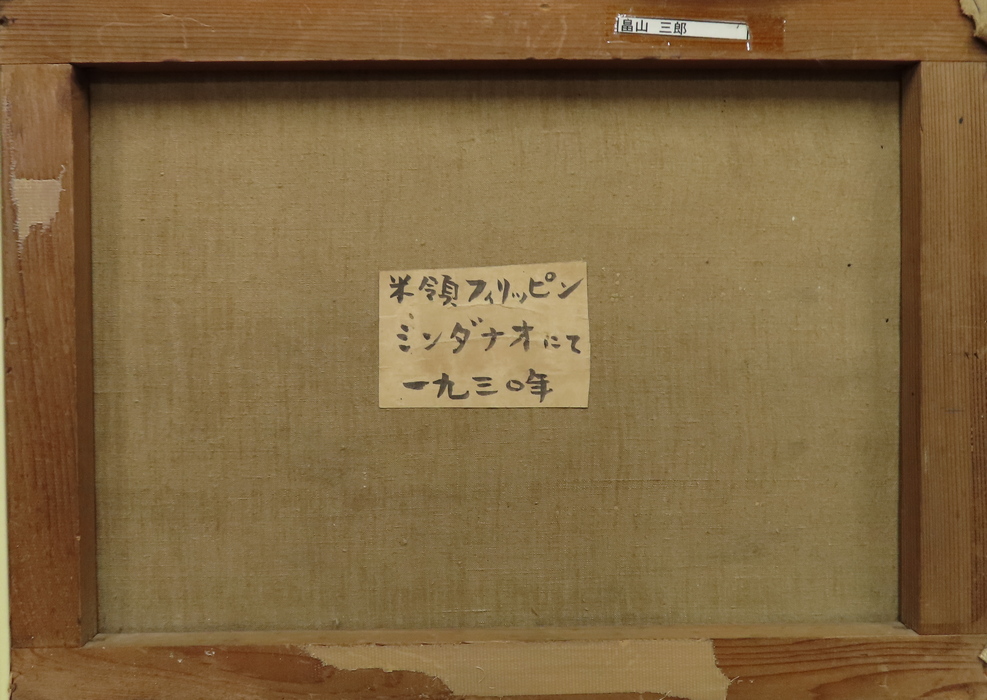 畠山 三郎
米領フィリッピン
ミンダナオにて
一九三〇年